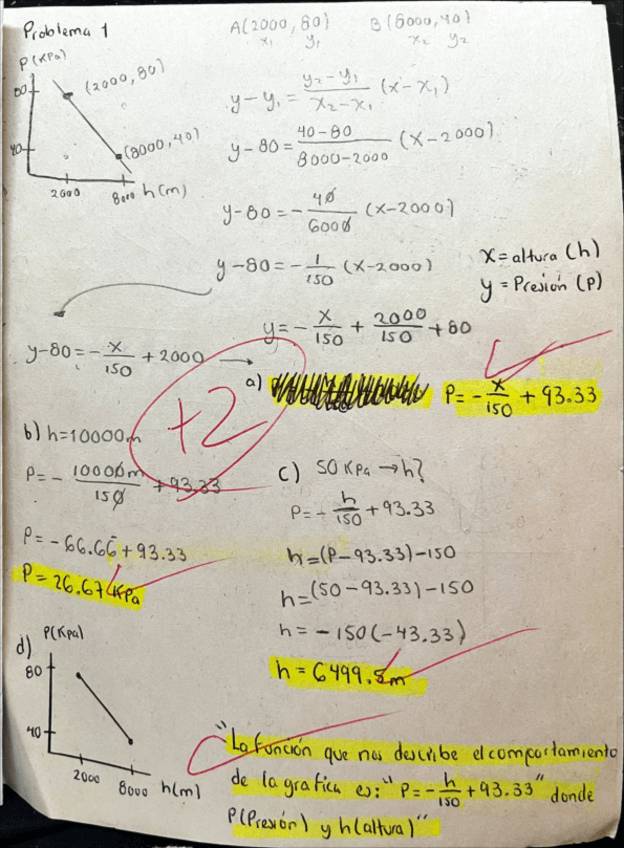 Problema 1
A(2000, 80) B(8000, 40)
x₁ y₁ x₂ y₂
P(KPa)
80
(2000, 80)
40
(8000, 40)
2000 8000 h(m)
y-y₁ = (y₂-y₁)/(x₂-x₁) (x-x₁)
y-80 = (40-80)/(8000-2000) (x-2000)
y-80 = - 40/6000 (x-2000)
y-80 = - 1/150 (x-2000)
x = altura (h)
y = Presión (P)
y = - x/150 + 2000/150 + 80
y-80 = - x/150 + 2000 →
a) P = - x/150 + 93.33
+2
b) h=10000m
P = - 10000m/150 + 93.33
P = -66.66 + 93.33
P = 26.67 KPa
c) 50 KPa → h?
P = - h/150 + 93.33
h = (P-93.33)-150
h = (50-93.33)-150
h = -150(-43.33)
h = 6499.5m
d) P(KPa)
80
40
2000 8000 h(m)
"La función que nos describe el comportamiento
de la grafica es: "P = - h/150 + 93.33" donde
P(Presión) y h(altura)"